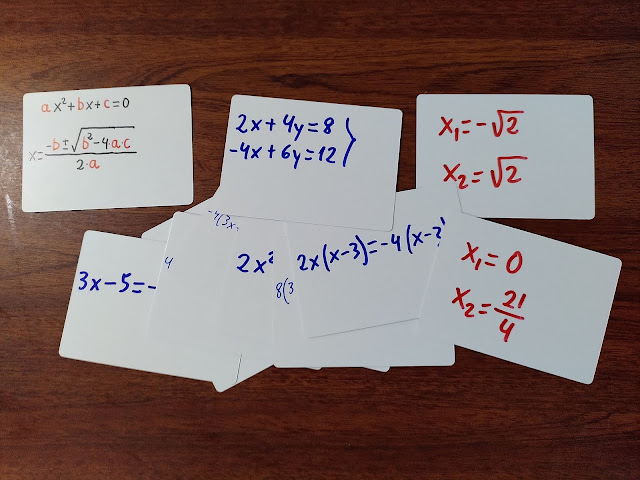 ax²+bx+c=0
x=(-b±√(b²-4·a·c))/(2·a)
2x+4y=8
-4x+6y=12}
x₁=-√2
x₂=√2
-4(3x
3x-5=-
4
2x²
8(3
2x(x-3)=-4(x-
x₁=0
x₂=21/4